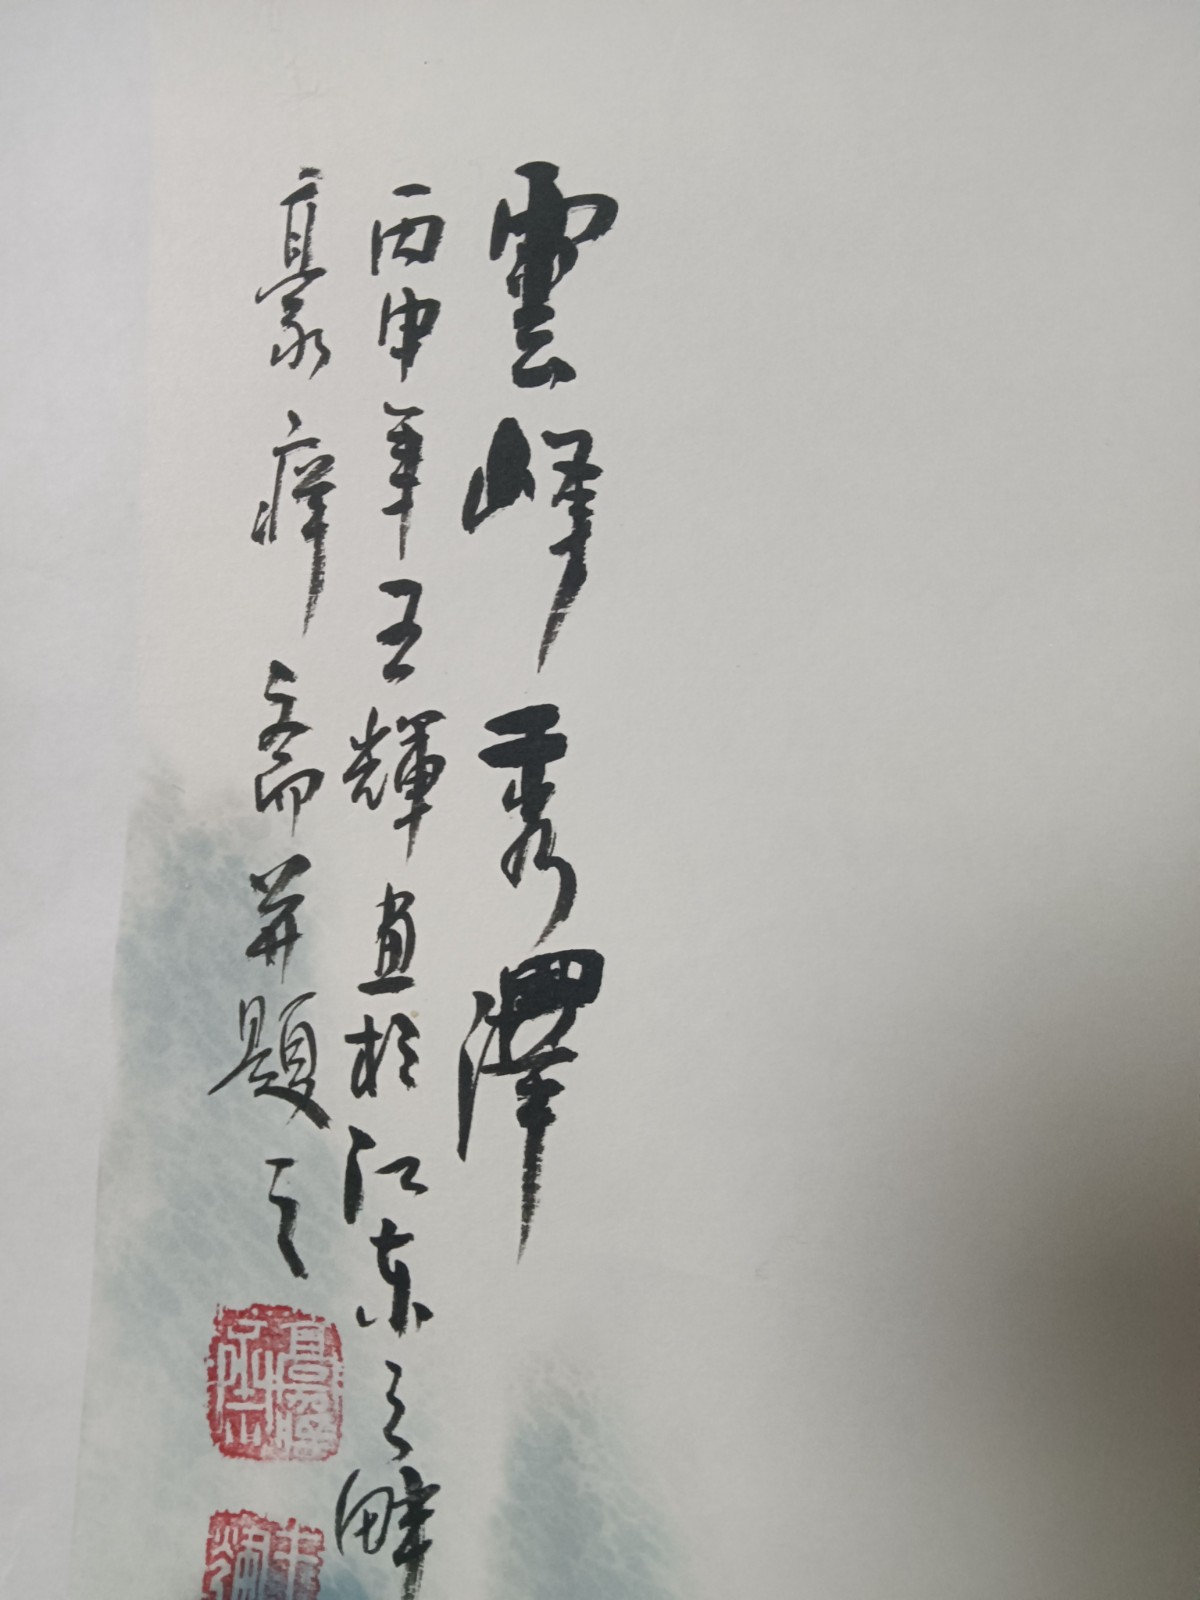 雲峰秀澤
丙申年王輝畫於江東之畔
豪瘴齋并題之